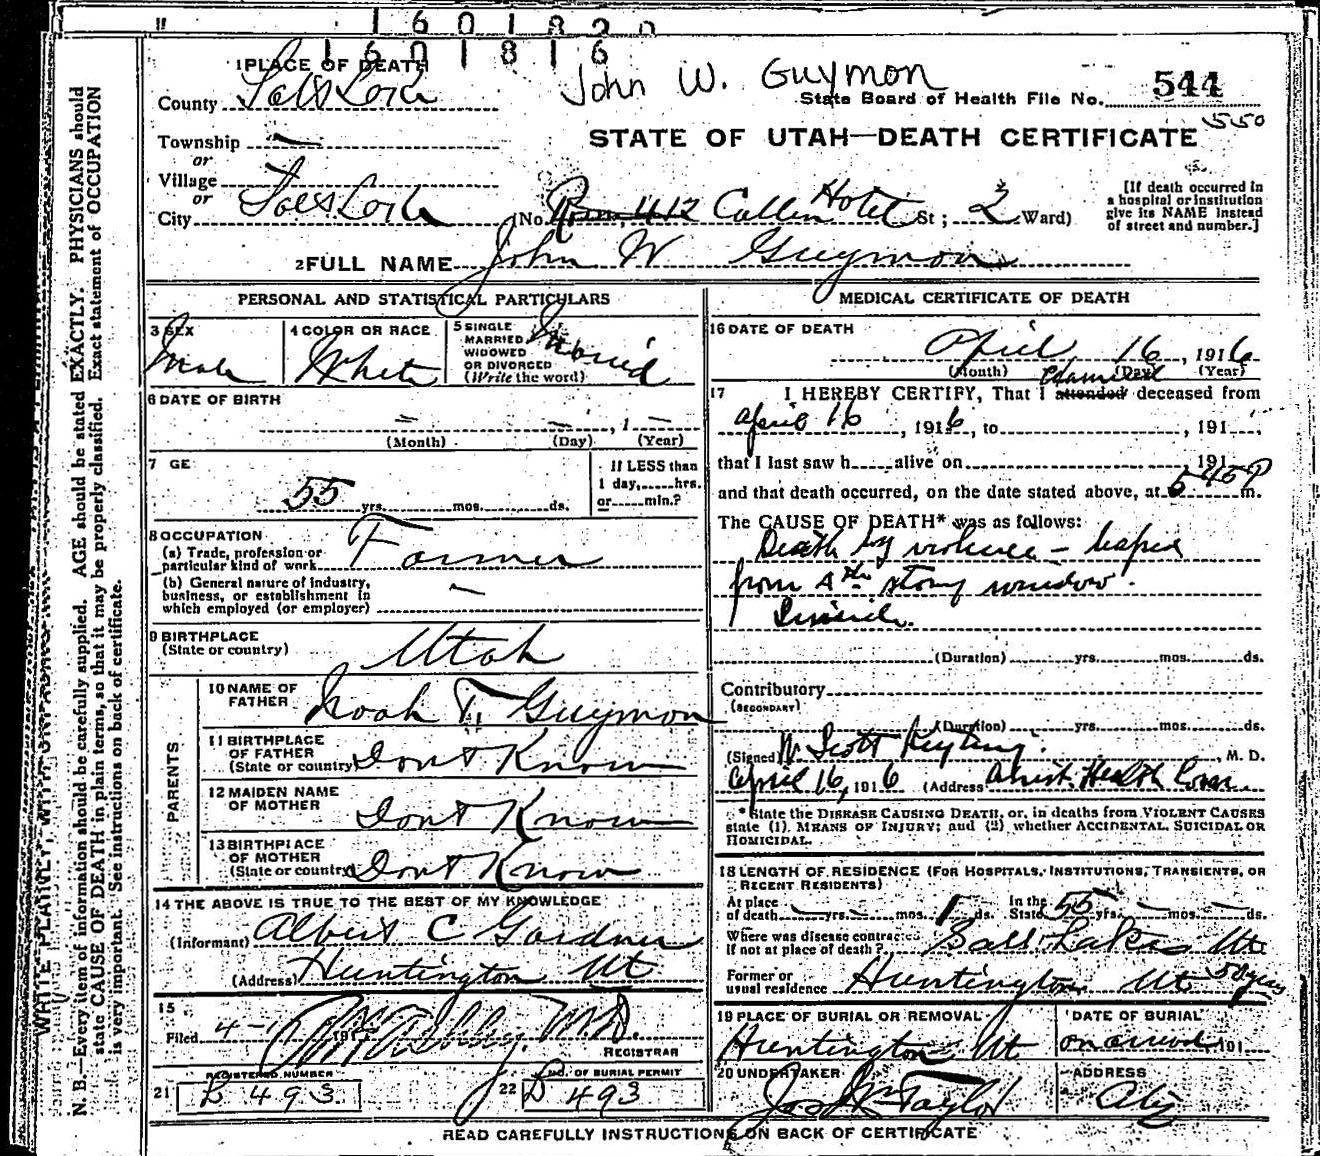 11
1 6 0 1 8 2 0
1 6 0 1 8 1 6
1 PLACE OF DEATH
John W. Guymon
County Salt Lake
State Board of Health File No. 544
550
STATE OF UTAH—DEATH CERTIFICATE
Township —
or
Village
or
City Salt Lake (No. Room 412 Cullen Hotel St; 2 Ward)
[If death occurred in a hospital or institution give its NAME instead of street and number.]
2 FULL NAME John W Guymon
PERSONAL AND STATISTICAL PARTICULARS
3 SEX Male
4 COLOR OR RACE White
5 SINGLE MARRIED WIDOWED OR DIVORCED (Write the word) Married
6 DATE OF BIRTH
— — , 1 —
(Month) (Day) (Year)
7 GE
55 yrs. mos. ds.
If LESS than 1 day, hrs. or min.?
8 OCCUPATION
(a) Trade, profession or particular kind of work Farmer
(b) General nature of industry, business, or establishment in which employed (or employer) —
9 BIRTHPLACE (State or country) Utah
PARENTS
10 NAME OF FATHER Noah T. Guymon
11 BIRTHPLACE OF FATHER (State or country) Dont Know
12 MAIDEN NAME OF MOTHER Dont Know
13 BIRTHPLACE OF MOTHER (State or country) Dont Know
14 THE ABOVE IS TRUE TO THE BEST OF MY KNOWLEDGE
(Informant) Albert C Gardner
(Address) Huntington Ut
15
Filed 4- 191 M.D.
REGISTRAR
REGISTERED NUMBER
21 B 493
NO. OF BURIAL PERMIT
22 D 493
MEDICAL CERTIFICATE OF DEATH
16 DATE OF DEATH
April 16, 1916
(Month) (Day) (Year)
17 I HEREBY CERTIFY, That I attended Examined deceased from
April 16, 1916, to , 191 ,
that I last saw h alive on 191
and that death occurred, on the date stated above, at 5 45 P m.
The CAUSE OF DEATH* was as follows:
Death by violence - leaped
from 4th story window.
Suicide.
(Duration) yrs. mos. ds.
Contributory (SECONDARY)
(Duration) yrs. mos. ds.
(Signed) W. Scott Keyting, M. D.
April 16, 1916 (Address) Assist. Health Com.
*State the DISEASE CAUSING DEATH, or, in deaths from VIOLENT CAUSES
state (1) MEANS OF INJURY; and (2) whether ACCIDENTAL, SUICIDAL OR
HOMICIDAL.
18 LENGTH OF RESIDENCE (FOR HOSPITALS, INSTITUTIONS, TRANSIENTS, OR RECENT RESIDENTS)
At place of death — yrs. — mos. 1 ds. In the State 55 yrs. — mos. — ds.
Where was disease contracted if not at place of death? Salt Lake Ut
Former or usual residence Huntington Ut 50 yrs
19 PLACE OF BURIAL OR REMOVAL
Huntington Ut
DATE OF BURIAL
on arrival, 191
20 UNDERTAKER
Jos Wm Taylor
ADDRESS
City
READ CAREFULLY INSTRUCTIONS ON BACK OF CERTIFICATE
N. B.—Every item of information should be carefully supplied. AGE should be stated EXACTLY. PHYSICIANS should
state CAUSE OF DEATH in plain terms, so that it may be properly classified. Exact statement of OCCUPATION
is very important. See instructions on back of certificate.